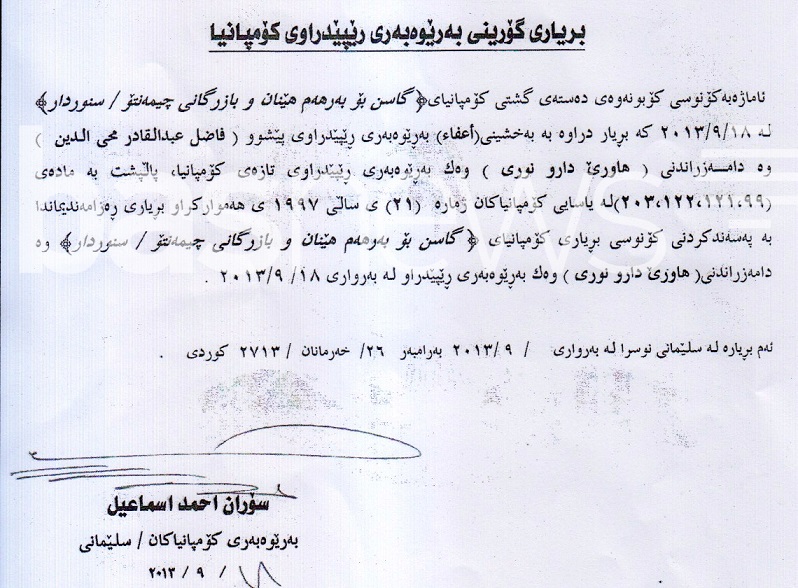 بریاری گۆرینی بەرێوەبەری رێپێدراوی کۆمپانیا
ئاماژەبەکۆنوسی کۆبونەوەی دەستەی گشتی کۆمپانیای﴿ گاسن بۆ بەرهەم هێنان و بازرگانی چیمەنتۆ / سنوردار﴾
لە ٢٠١٣/٩/١٨ کە بریار دراوە بە بەخشینی(أعفاء) بەرێوەبەری رێپێدراوی پێشوو ( فاضل عبدالقادر محی الدین )
وە دامەزراندنی ( هاورێ دارو نوری ) وەک بەرێوەبەری رێپێدراوی تازەی کۆمپانیا، پاڵپشت بە مادەی
(٢٠٣،١٢٢،١٢١،٩٩)لە یاسایی کۆمپانیاکان ژمارە (٢١) ی ساڵی ١٩٩٧ ی هەموارکراو بریاری رەزامەندیماندا
بە پەسەندکردنی کۆنوسی بریاری کۆمپانیای ﴿ گاسن بۆ بەرهەم هێنان و بازرگانی چیمەنتۆ / سنوردار﴾ وە
دامەزراندنی( هاورێ دارو نوری ) وەک بەرێوەبەری رێپێدراو لە بەرواری ١٨/ ٩/ ٢٠١٣ .
ئەم بریارە لە سلێمانی نوسرا لە بەرواری / ٩ / ٢٠١٣ بەرامبەر ٢٦/ خەرمانان / ٢٧١٣ کوردی .
سۆران احمد اسماعیل
بەرێوەبەری کۆمپانیاکان / سلێمانی
/ ٩ / ٢٠١٣
basnews